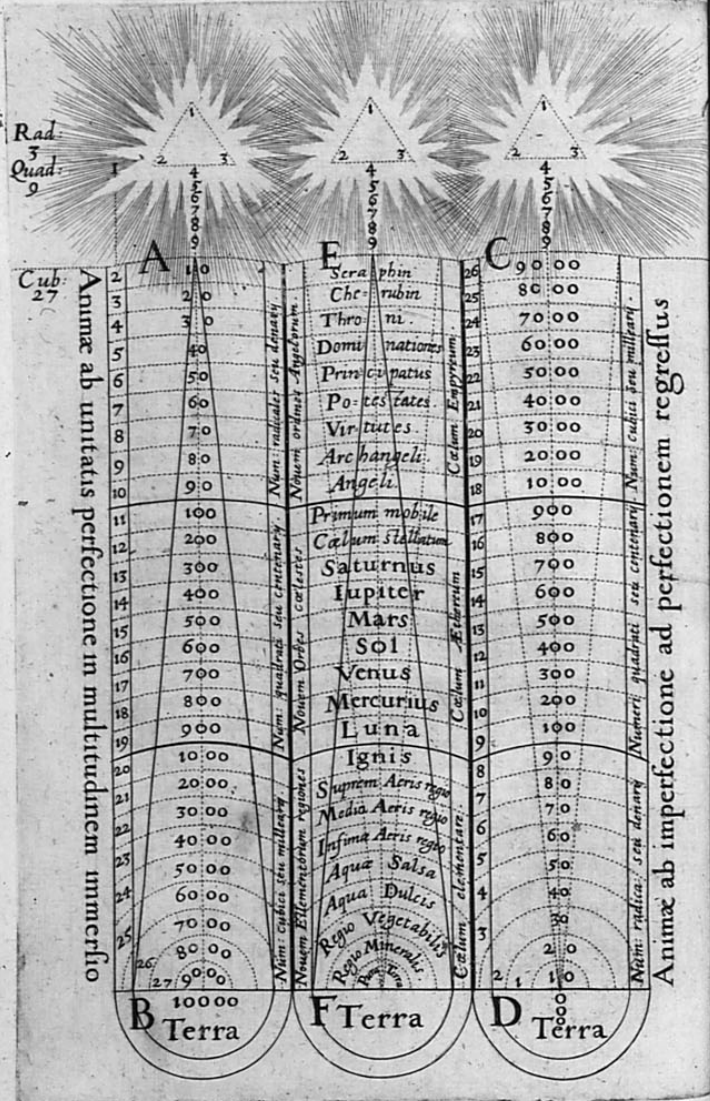 Rad:
3
Quad:
9
Cub:
27
Animæ ab unitatis perfectione in multitudinem immersio
1
2 3
4
5
6
7
8
9
1
2
3
4
5
6
7
8
9
10
11
12
13
14
15
16
17
18
19
20
21
22
23
24
25
26
27
A
10
20
30
40
50
60
70
80
90
100
200
300
400
500
600
700
800
900
10 00
20 00
30 00
40 00
50 00
60 00
70 00
80 00
9000
10000
B Terra
Num: radicales seu denarÿ
Num: quadrati seu centenarÿ
Num: cubici seu millearÿ
1
2 3
4
5
6
7
8
9
E
Novem ordines Angelorum.
Novem Orbes cœlestes
Novem Ellementorum regiones
Sera phin
Che rubin
Thro ni.
Domi nationes
Prin ci patus
Po= tes tates
Vir tut es
Arc hangeli.
Angeli
Primum mobile
Cœlum stellatum
Saturnus
Iupiter
Mars
Sol
Venus
Mercurius
Luna
Ignis
Suprem Aeris regio
Media Aeris regio
Infima Aeris regio
Aqua Salsa
Aqua Dulcis
Regio Vegetabilis
Regio Mineralis
Terra
F Terra
Cœlum Empyreum.
Cœlum Æthereum
Cœlum elementare.
1
2 3
4
5
6
7
8
9
C
26
25
24
23
22
21
20
19
18
17
16
15
14
13
12
11
10
9
8
7
6
5
4
3
2
1
90 00
80 00
70 00
60 00
50 00
40 00
30 00
20 00
10 00
900
800
700
600
500
400
300
200
100
90
80
70
60
50
40
30
20
10
D Terra
Num: cubici seu millearÿ.
Numeri quadrati seu centenarÿ
Num: radica: seu denarÿ
Animæ ab imperfectione ad perfectionem regressus